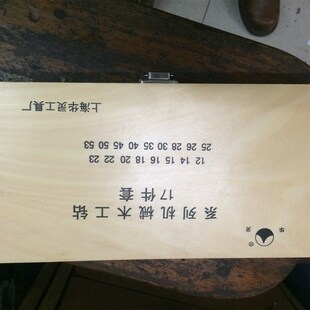 华 灵 ®
系列机械木工钻
17件套
12 14 15 16 18 20 22 23
25 26 28 30 35 40 45 50 53
上海华灵工具厂